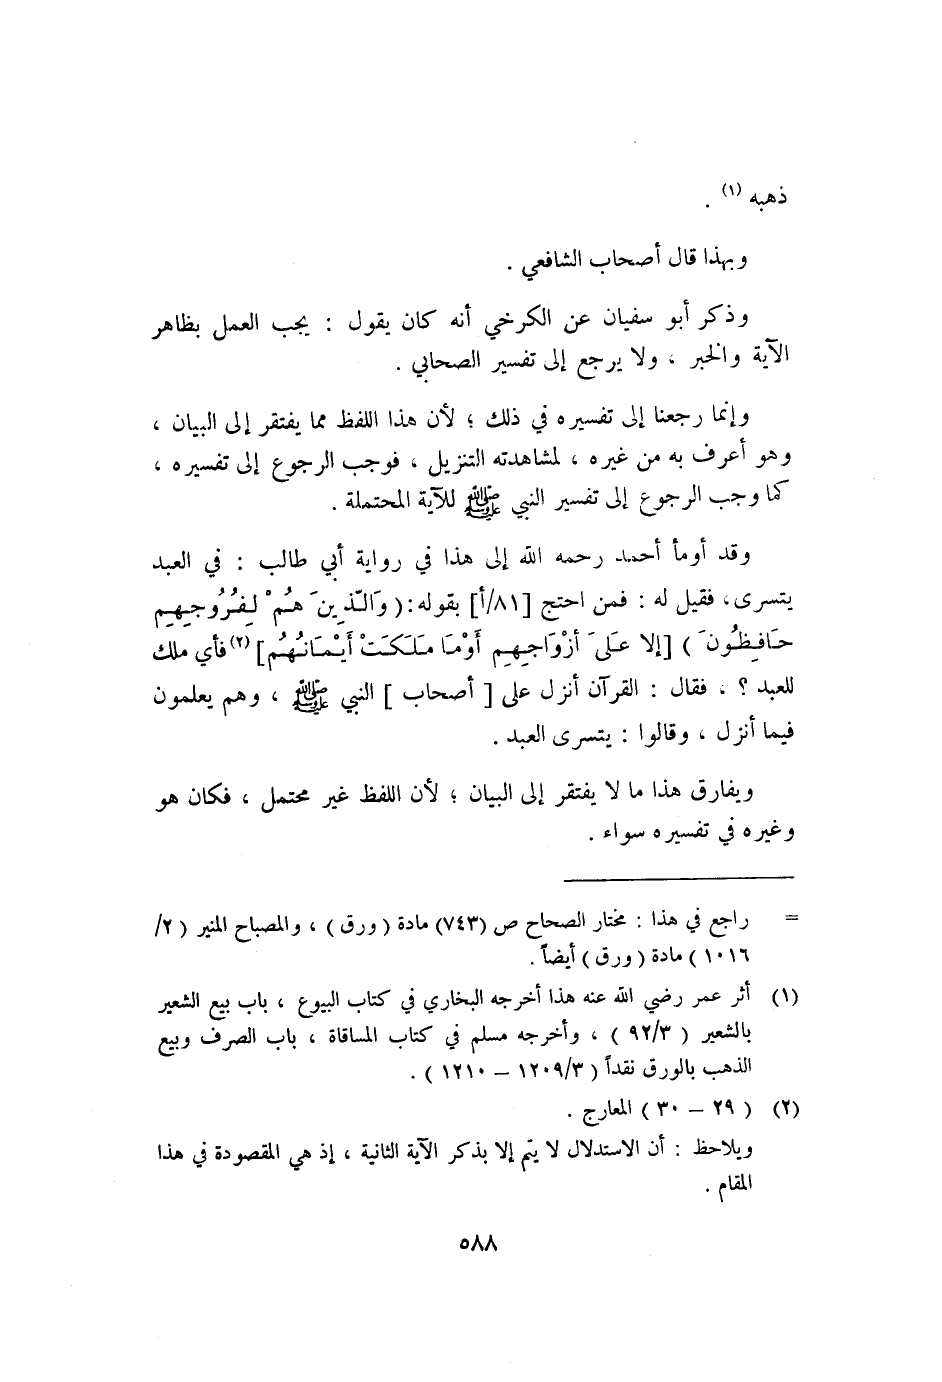 ذهبه (١) .
وبهذا قال أصحاب الشافعي .
وذكر أبو سفيان عن الكرخي أنه كان يقول : يجب العمل بظاهر
الآية والخبر ، ولا يرجع إلى تفسير الصحابي .
وإنما رجعنا إلى تفسيره في ذلك ؛ لأن هذا اللفظ مما يفتقر إلى البيان ،
وهو أعرف به من غيره ، لمشاهدته التنزيل ، فوجب الرجوع إلى تفسيره ،
كما وجب الرجوع إلى تفسير النبي ﷺ للآية المحتملة .
وقد أومأ أحمد رحمه الله إلى هذا في رواية أبي طالب : في العبد
يتسرى، فقيل له : فمن احتج [٨١/أ] بقوله: ( وَالَّذِينَ هُمْ لِفُرُوجِهِم
حَافِظُونَ ) [إلا عَلَىَ أزْوَاجِهِم أَوْمَا مَلَكَتْ أَيْمَانُهُم] (٢) فأي ملك
للعبد ؟ ، فقال : القرآن أنزل على [ أصحاب ] النبي ﷺ ، وهم يعلمون
فيما أنزل ، وقالوا : يتسرى العبد .
ويفارق هذا ما لا يفتقر إلى البيان ؛ لأن اللفظ غير محتمل ، فكان هو
وغيره في تفسيره سواء .
= راجع في هذا : مختار الصحاح ص (٧٤٣) مادة ( ورق ) ، والمصباح المنير ( ٢/
١٠١٦ ) مادة ( ورق ) أيضاً .
(١) أثر عمر رضي الله عنه هذا أخرجه البخاري في كتاب البيوع ، باب بيع الشعير
بالشعير ( ٩٢/٣ ) ، وأخرجه مسلم في كتاب المساقاة ، باب الصرف وبيع
الذهب بالورق نقداً ( ١٢٠٩/٣ – ١٢١٠ ) .
(٢) ( ٢٩ – ٣٠ ) المعارج .
ويلاحظ : أن الاستدلال لا يتم إلا بذكر الآية الثانية ، إذ هي المقصودة في هذا
المقام .
٥٨٨